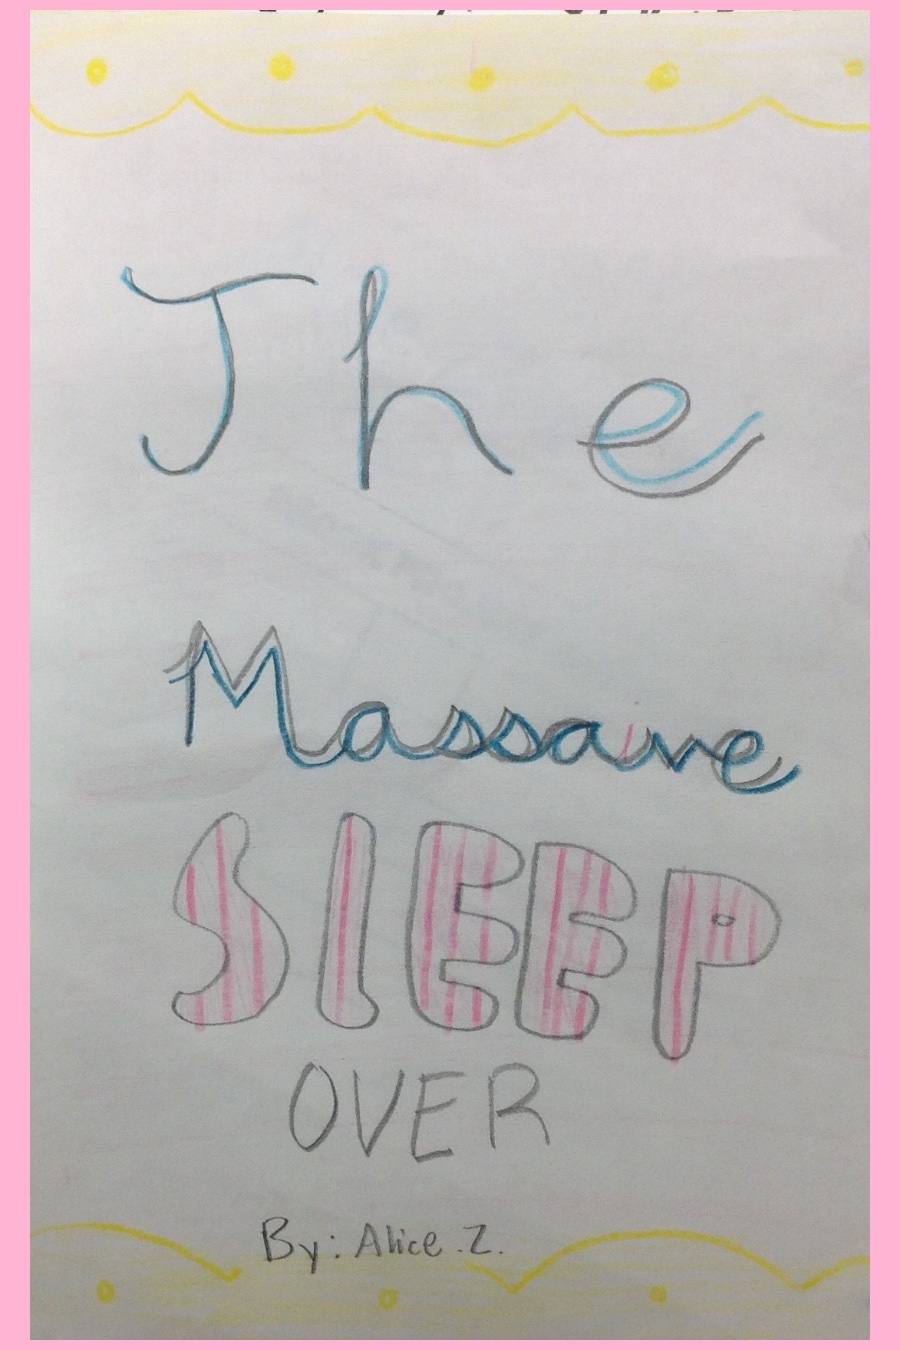 The
Massave
SlEEP
OVER
By: Alice .Z.